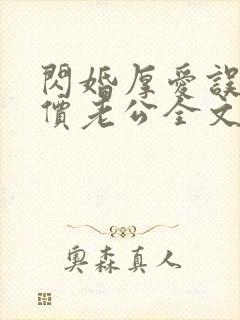 閃婚厚愛誤
價老公全文
奧森真人